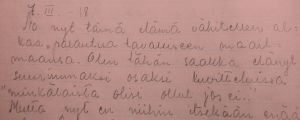 7. III. - 18.
No nyt tämä elämä vähitellen al-
kaa palautua tavalliseen maail-
maansa. Olen tähän saakka elänyt
suurimmaksi osaksi kuvitteluissa
"minkälaista olisi ollut jos ei..."
Mutta nyt en niihin itsekään enää